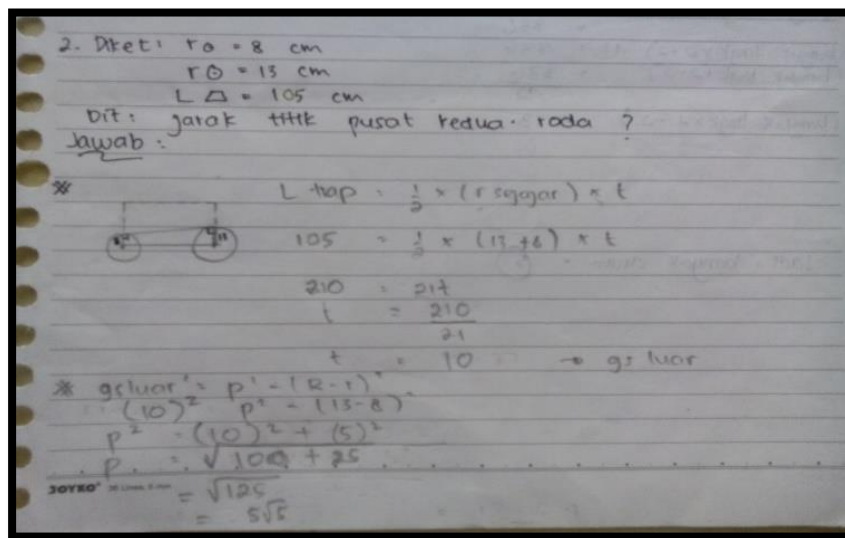 2. Diket : r o = 8 cm
r ⊙ = 13 cm
L ⏢ = 105 cm
Dit : jarak titik pusat kedua roda ?
Jawab :
* L trap = 1/2 × (r sejajar) × t
105 = 1/2 × (13 + 8) × t
210 = 21t
t = 210
21
t = 10 → gs luar
* gs luar² = p² - (R - r)²
(10)² p² - (13-8)²
p² = (10)² + (5)²
p = √100 + 25
JOYKO
= √125
= 5√5